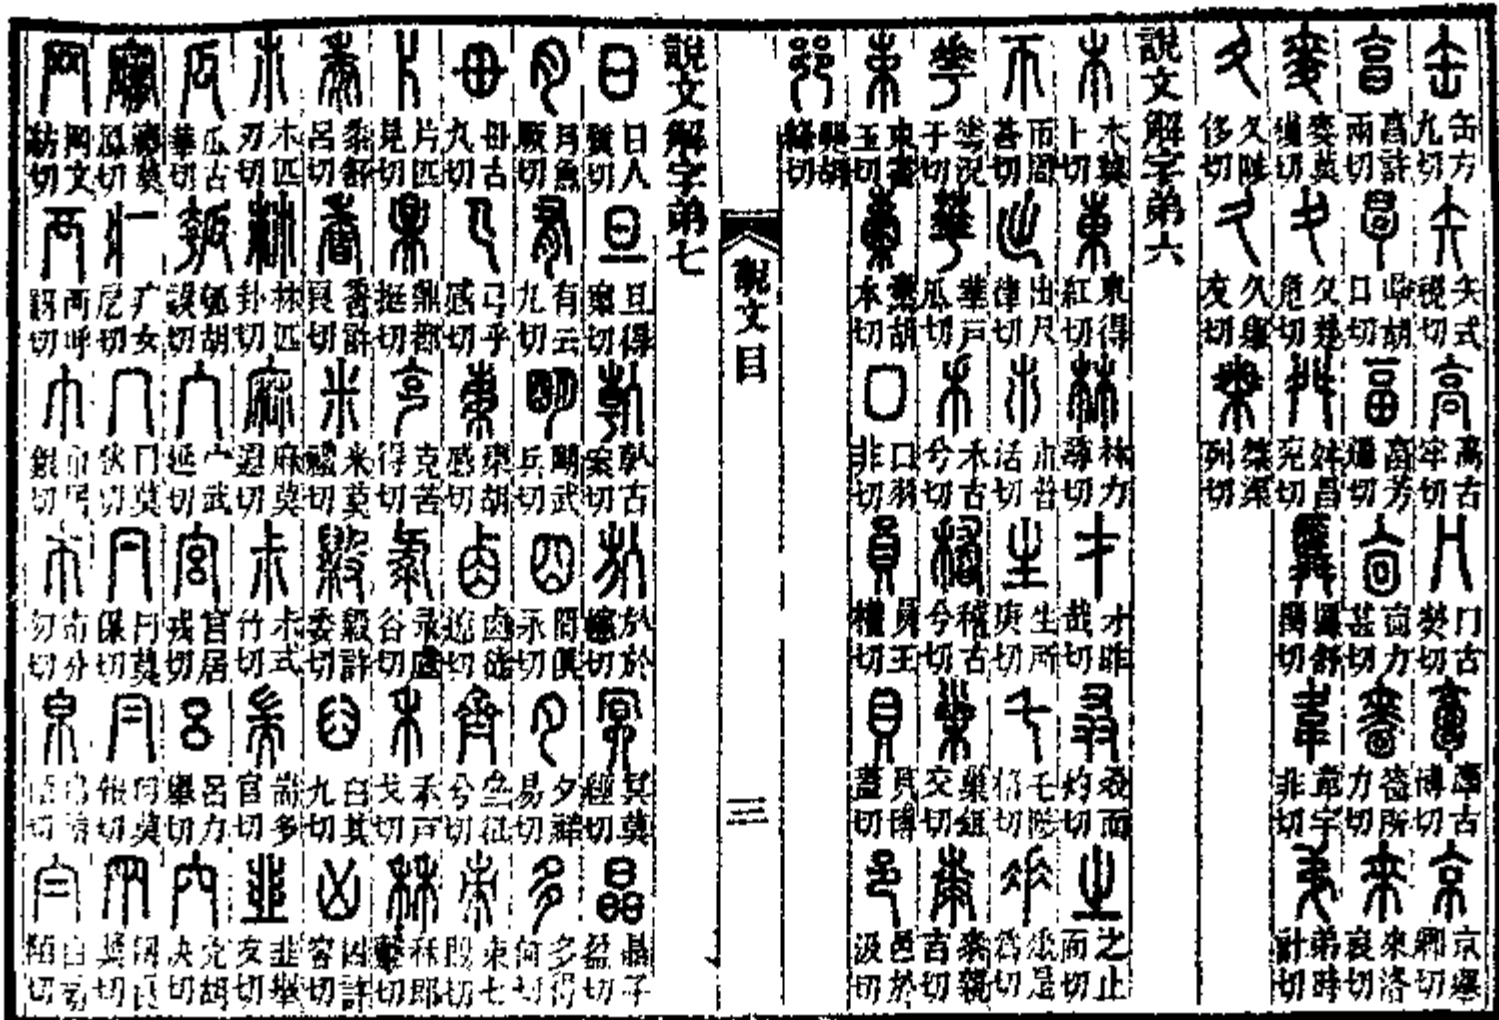 缶缶方九切 矢矢式視切 高高古牢切 冂冂古熒切 𩫖𩫖古博切 京京舉卿切
亯亯許兩切 㫗㫗胡口切 畗畗芳逼切 㐭㐭力甚切 嗇嗇所力切 來來洛哀切
麥麥莫切 夊夊楚危切 舛舛昌兖切 䑞䑞舒閏切 韋韋宇非切 弟弟時計切
夂夂陟侈切 久久舉友切 桀桀渠列切
說文解字弟六
木木莫卜切 東東得紅切 林林力尋切 才才昨哉切 叒叒而灼切 之之止而切
帀帀周切 出出尺律切 𣎵𣎵普活切 生生所庚切 乇乇陟格切 𠂹𠂹是爲切
𠌶𠌶況于切 華華戶瓜切 禾禾古兮切 稽稽古兮切 巢巢鉏交切 桼桼親吉切
束束書玉切 㯻㯻胡本切 囗囗羽非切 員員王權切 貝貝博蓋切 邑邑於汲切
𨛜𨛜胡絳切
說文目
三
說文解字弟七
日日人質切 旦旦得案切 倝倝古案切 㫃㫃於幰切 冥冥莫經切 晶晶子盈切
月月魚厥切 有有云九切 朙朙武兵切 囧囧俱永切 夕夕祥易切 多多得何切
毌毌古丸切 𢎘𢎘乎感切 𣐺𣐺胡感切 𠧪𠧪徒遼切 齊齊徂兮切 朿朿七切
片片匹見切 鼎鼎都挺切 克克苦得切 彔彔盧谷切 禾禾戶戈切 秝秝郎擊切
黍黍舒呂切 香香許良切 米米莫禮切 毇毇許委切 臼臼其九切 凶凶許容切
𣎳𣎳匹刃切 𣏟𣏟匹卦切 麻麻莫遐切 尗尗式竹切 耑耑多官切 韭韭舉友切
瓜瓜古華切 瓠瓠胡誤切 宀宀武延切 宮宮居戎切 呂呂力舉切 穴穴胡決切
㝱㝱莫鳳切 疒疒女戹切 冖冖莫狄切 𠔼𠔼莫保切 冃冃莫報切 㒳㒳良獎切
网网文紡切 襾襾呼訝切 巾巾居銀切 巿巿分勿切 帛帛旁陌切 白白旁陌切